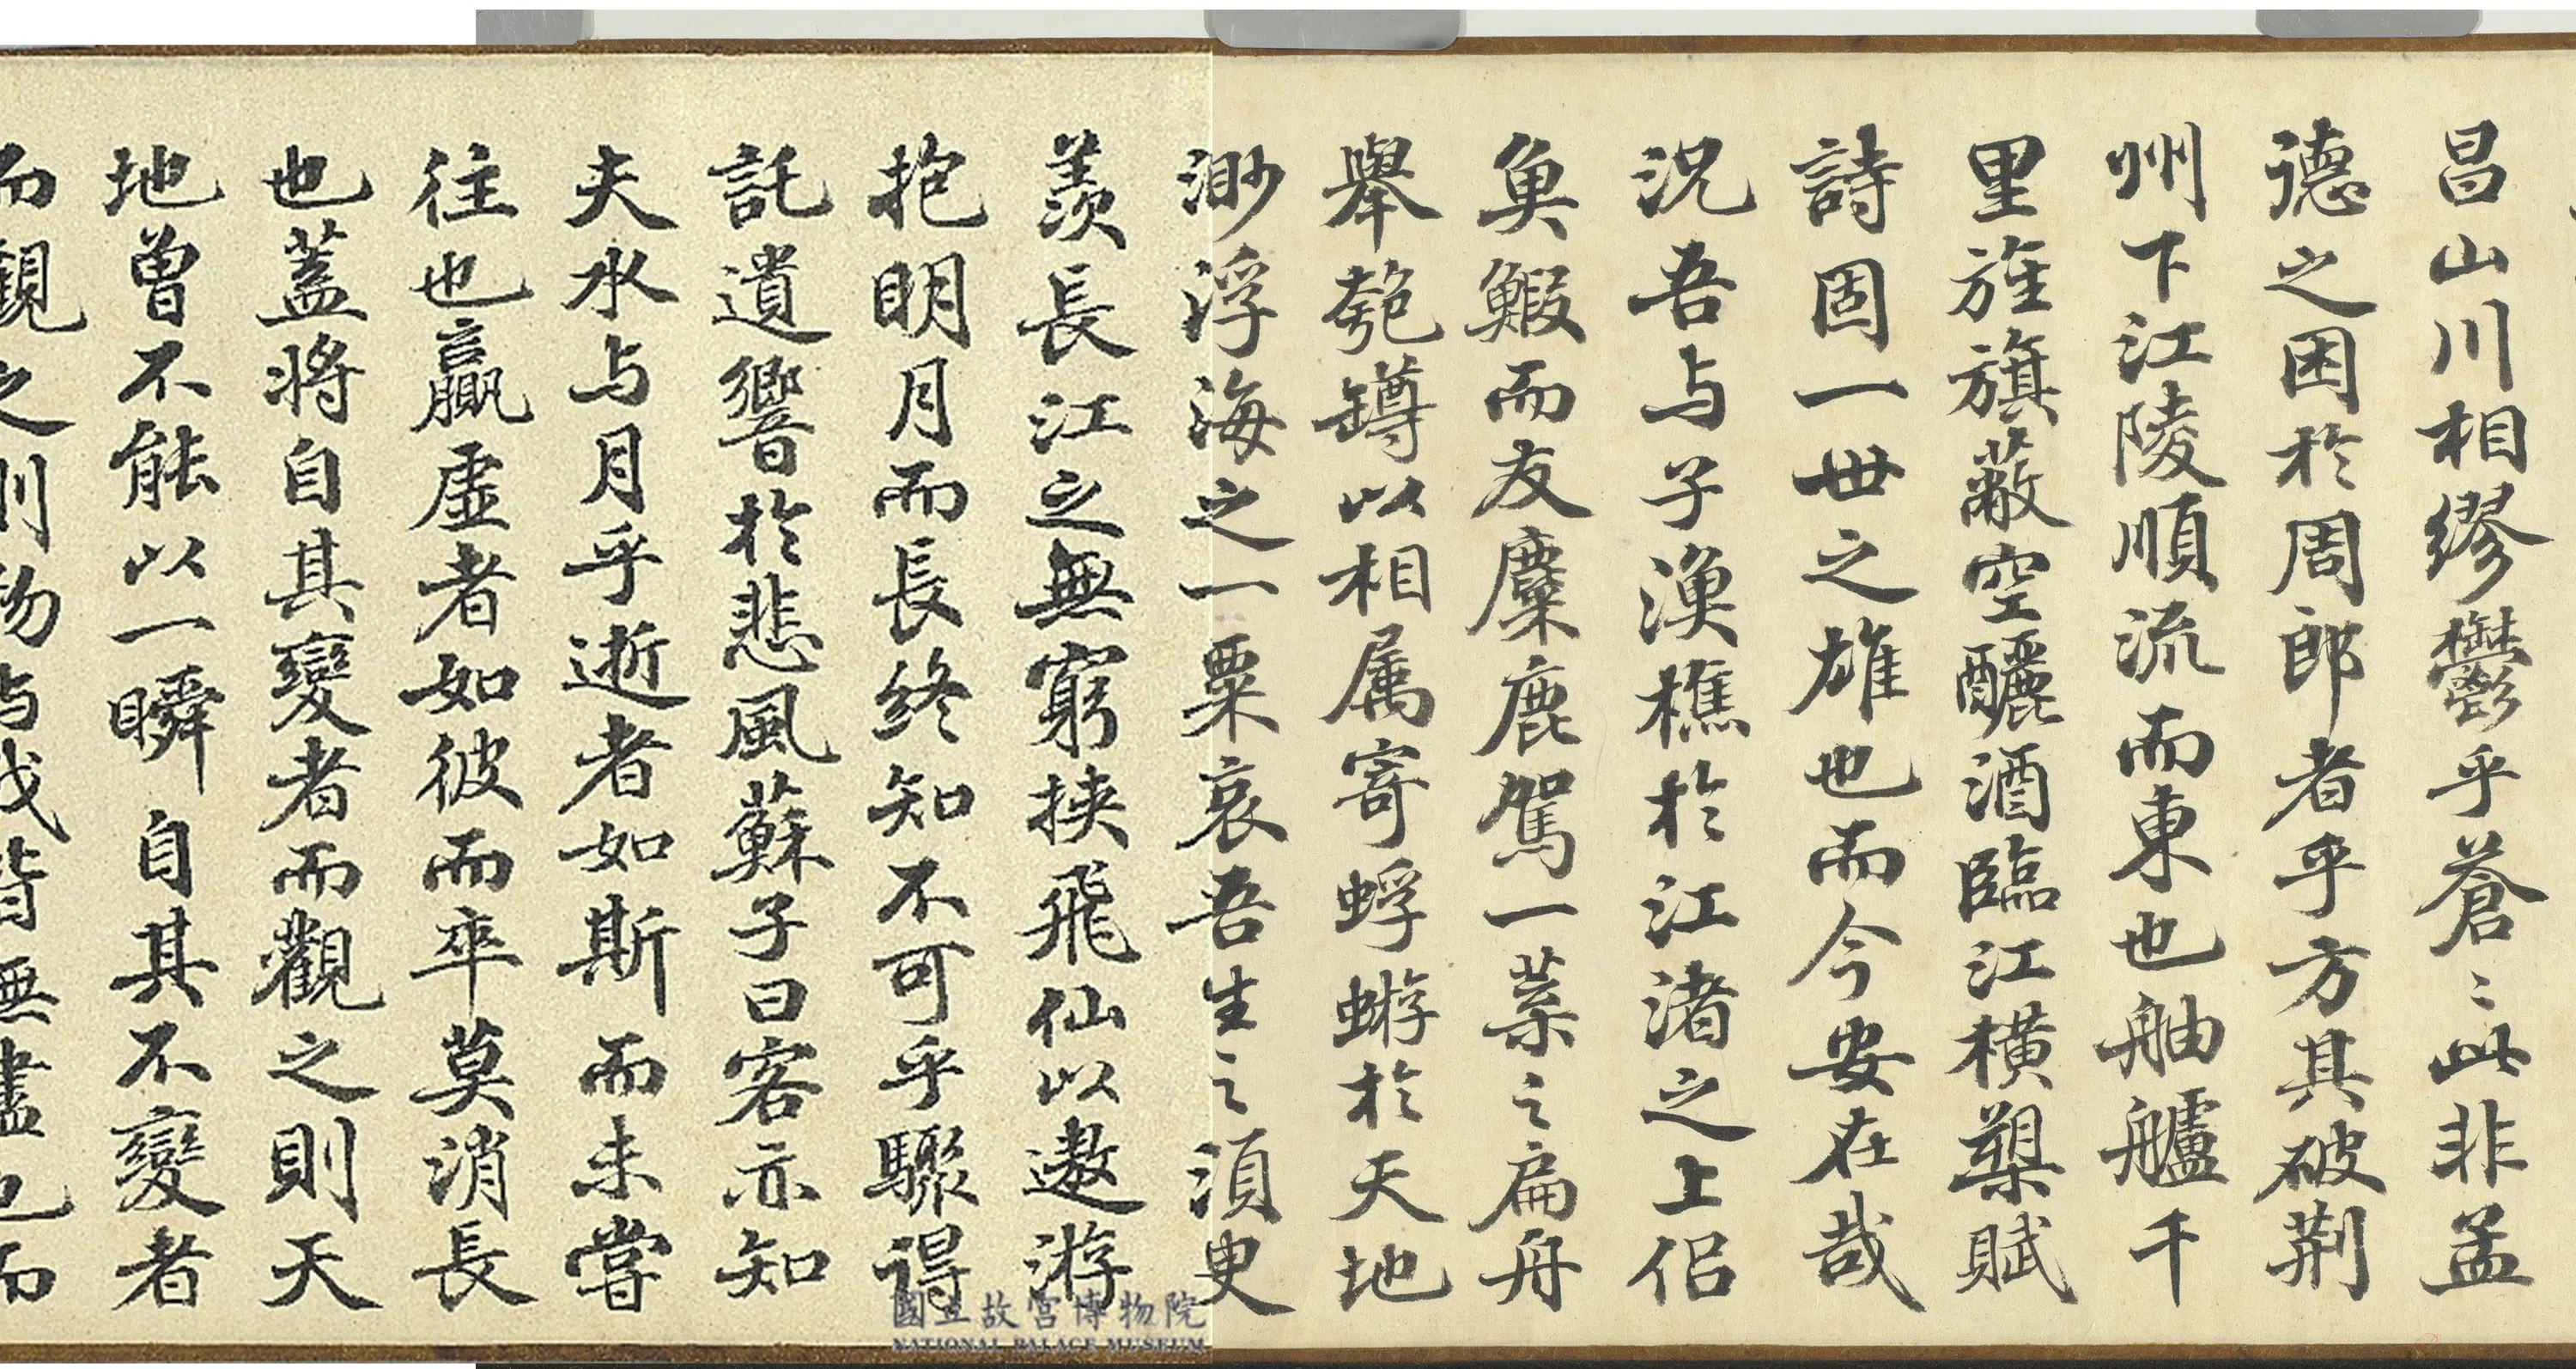 昌山川相繆鬱乎蒼〻此非孟
德之困於周郎者乎方其破荆
州下江陵順流而東也舳艫千
里旌旗蔽空釃酒臨江橫槊賦
詩固一世之雄也而今安在哉
況吾与子漁樵於江渚之上侣
魚鰕而友麋鹿駕一葉之扁舟
舉匏罇以相属寄蜉蝣於天地
渺浮海之一粟哀吾生之須臾
羨長江之無窮挟飛仙以遨游
抱明月而長終知不可乎驟得
託遺響於悲風蘇子曰客亦知
夫水与月乎逝者如斯而未嘗
往也贏虛者如彼而卒莫消長
也蓋將自其變者而觀之則天
地曾不能以一瞬自其不變者
而觀之則物与我皆無盡也而
國立故宮博物院
NATIONAL PALACE MUSEUM